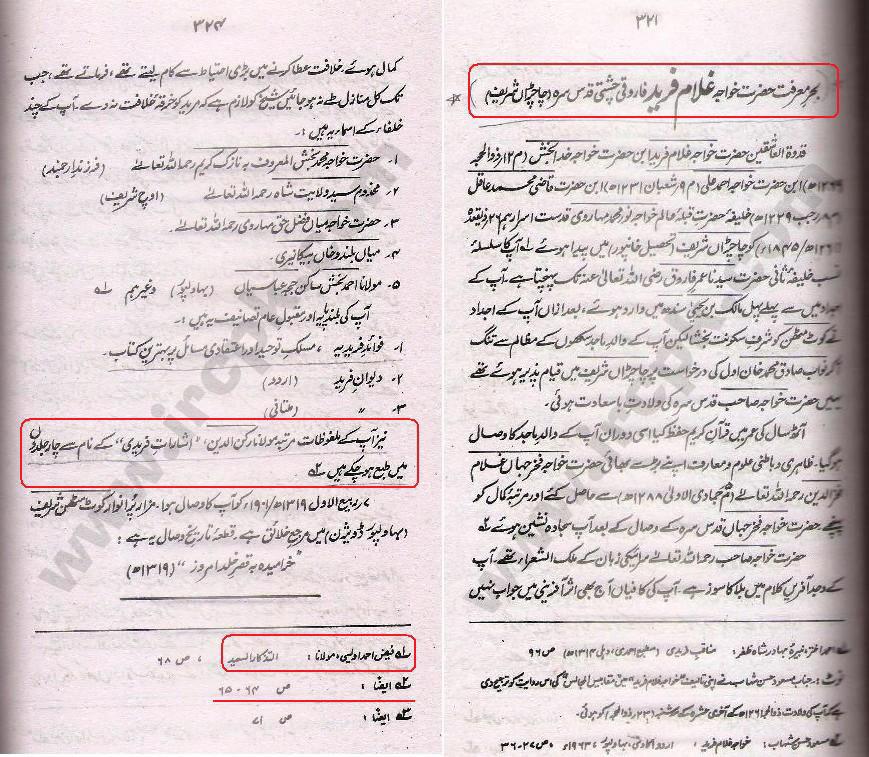 ۳۲۱
بحرِ معرفت حضرت خواجہ غلام فرید فاروقی چشتی قدس سرہ (چاچڑاں شریف)
قدوۃ العاشقین حضرت خواجہ غلام فرید ابن حضرت خواجہ خدا بخش (م ۱۲ ذوالحجہ
۱۲۶۹ھ) ابن حضرت خواجہ احمد علی (م ۹ شعبان ۱۲۳۱ھ) ابن حضرت قاضی محمد عاقل
رجب ۱۲۲۹ھ) خلیفۂ حضرت قبلۂ عالم خواجہ نور محمد مہاروی قدست اسرارہم ۲۶ ذیقعدہ
/۱۸۴۵ء) کو چاچڑاں شریف (تحصیل خانپور) میں پیدا ہوئے لہ آپ کا سلسلۂ
نسب خلیفۂ ثانی حضرت سیدنا عمر فاروق رضی اللہ تعالیٰ عنہ تک پہنچتا ہے۔ آپ کے
اجداد میں سے پہلے پہل مالک بن یحییٰ سندھ میں وارد ہوئے، بعد ازاں آپ کے اجداد
نے کوٹ مٹھن کو شرفِ سکونت بخشا لیکن آپ کے والد ماجد سکھوں کے مظالم سے تنگ
آکر نواب صادق محمد خان اول کی درخواست پر چاچڑاں شریف میں قیام پذیر ہوئے تھے
یہیں حضرت خواجہ صاحب قدس سرہ کی ولادت با سعادت ہوئی۔
آٹھ سال کی عمر میں قرآن کریم حفظ کیا اسی دوران آپ کے والد ماجد کا وصال
ہوگیا۔ ظاہری و باطنی علوم و معارف اپنے بڑے بھائی حضرت خواجہ فخر جہاں غلام
فخر الدین رحمہ اللہ تعالیٰ (م جمادی الاولیٰ ۱۲۸۸ھ) سے حاصل کئے اور مرتبۂ کمال کو
پہنچے حضرت خواجہ فخر جہاں قدس سرہ کے وصال کے بعد آپ سجادہ نشین ہوئے ۲ہ
حضرت خواجہ صاحب رحمہ اللہ تعالیٰ سرائیکی زبان کے ملک الشعراء تھے۔ آپ
کے وجد آفریں کلام میں بلا کا سوز ہے۔ آپ کی کافیاں آج بھی اثر آفرینی میں جواب نہیں
لہ احمد اختر، نبیرۂ بہادر شاہ ظفر: مناقب فریدی (مطبع احمدی، دہلی ۱۳۱۴ھ) ص ۹۶
نوٹ: جناب مسعود حسن شہاب نے اپنی تالیف خواجہ غلام فرید میں مقابیس المجالس کی اس روایت کو ترجیح دی
ہے کہ آپ کی ولادت ذوالحجہ ۱۲۶۱ھ کے آخری عشرہ کے (۲۳ ذوالحجہ) کو ہوئی۔
۲ہ مسعود حسن شہاب: خواجہ غلام فرید: اردو اکادمی، بہاولپور ۱۹۶۳ء، ص ۲۷-۳۶
۳۲۴
کمال ہوئے، خلافت عطا کرنے میں بڑی احتیاط سے کام لیتے تھے، فرماتے تھے، جب
تک کل منازل طے نہ ہو جائیں شیخ کو لازم ہے کہ مرید کو خرقۂ خلافت نہ دے۔ آپ کے چند
خلفاء کے اسماء یہ ہیں:۔
۱۔ حضرت خواجہ محمد بخش المعروف بہ نازک کریم رحمہ اللہ تعالیٰ (فرزند ارجمند)
۲۔ مخدوم سید ولایت شاہ رحمہ اللہ تعالیٰ (اوچ شریف)
۳۔ حضرت خواجہ میاں فضل حق مہاروی رحمہ اللہ تعالیٰ۔
۴۔ میاں بلند و خاں بیکانیری۔
۵۔ مولانا احمد بخش ساکن عباسیاں (بہاولپور) وغیرہم لہ
آپ کی بلند پایہ اور مقبول عام تصانیف یہ ہیں:۔
۱۔ فوائد فریدیہ ، مسلک توحید اور اعتقادی مسائل پر بہترین کتاب۔
۲۔ دیوانِ فرید (اردو)
۳۔ " (ملتانی)
نیز آپ کے ملفوظات مرتبہ مولانا رکن الدین، "اشاراتِ فریدی" کے نام سے چار جلدوں
میں طبع ہو چکے ہیں ۲ہ
۷ ربیع الاول ۱۳۱۹ھ/۱۹۰۱ء کو آپ کا وصال ہوا۔ مزار پُر انوار کوٹ مٹھن شریف
(بہاولپور ڈویژن) میں مرجع خلائق ہے، قطعۂ تاریخ وصال یہ ہے:
"خرامیدہ بہ قصرِ خلد امروز" (۱۳۱۹ھ)
لہ فیض احمد اویسی، مولانا: التذکار السعید ، ص ۶۸
۲ہ ایضاً: ص ۶۴-۶۵
۳ہ ایضاً: ص ۷۱
www.ircpk.com
www.ircpk.com